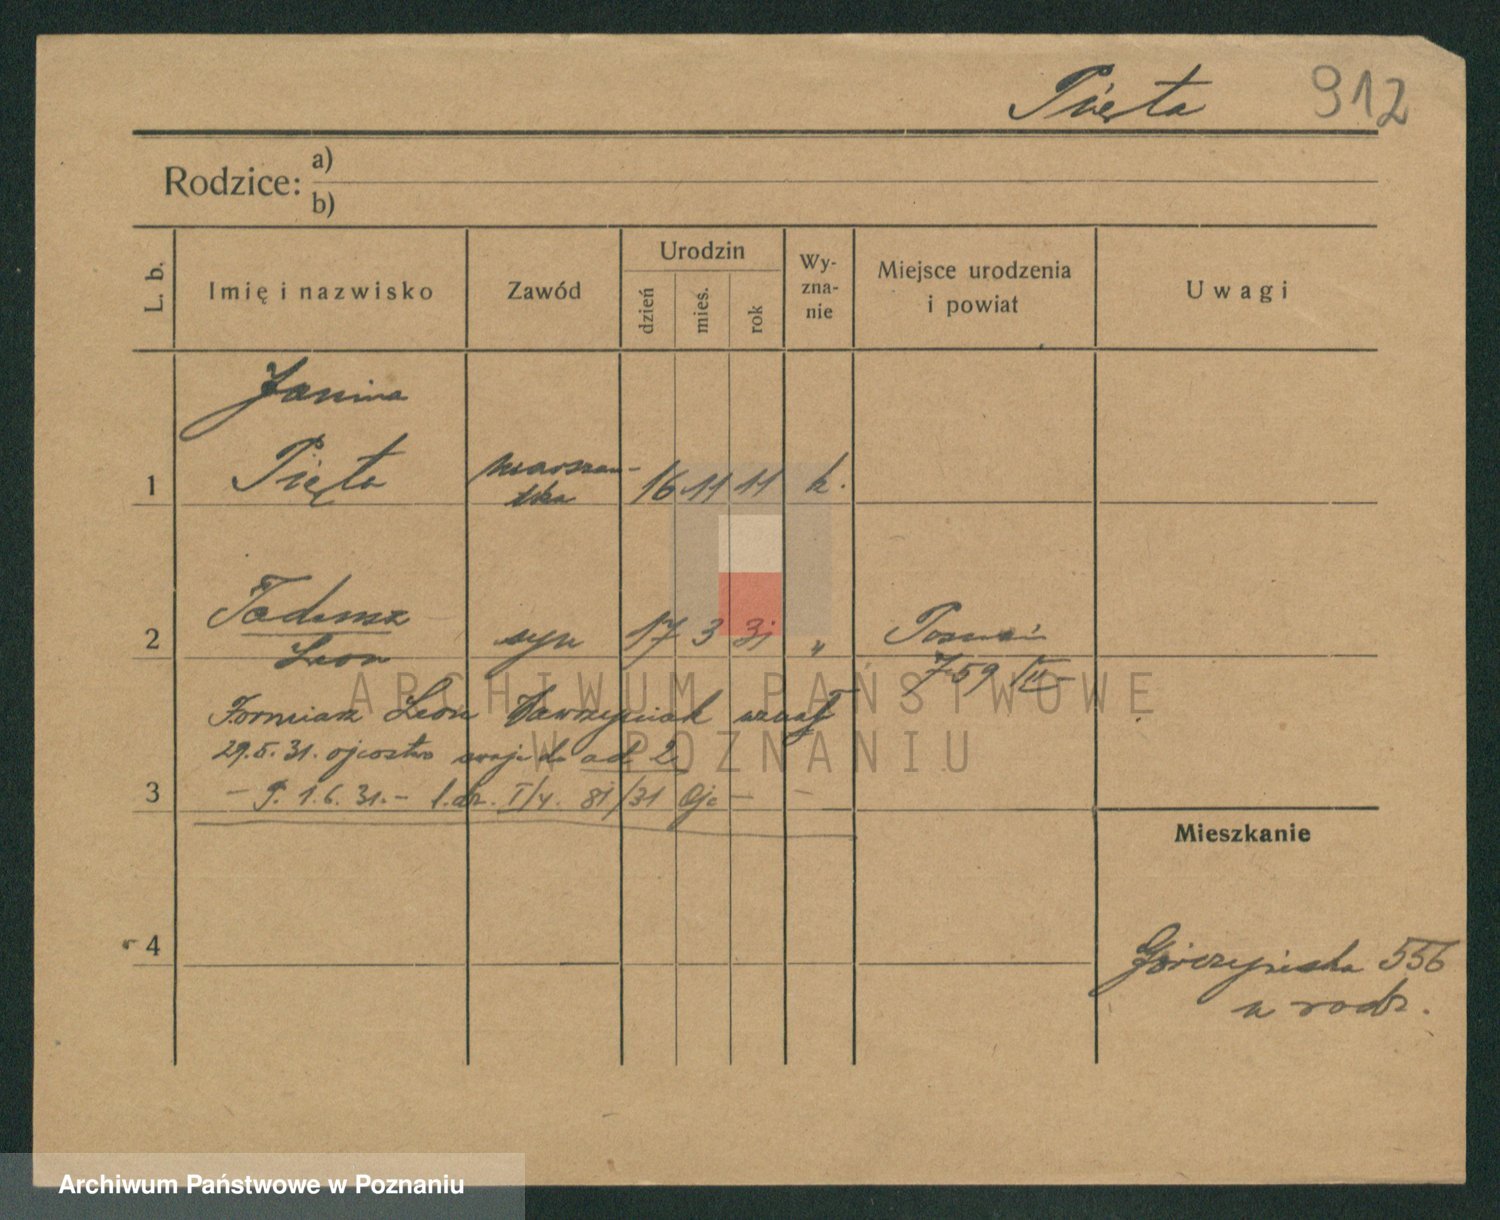 Pięta 912
Rodzice: a)
b)
L. b.
Imię i nazwisko
Zawód
Urodzin
dzień
mies.
rok
Wy-
zna-
nie
Miejsce urodzenia
i powiat
Uwagi
Janina
1 Pięta 16 11 11 k.
2 Tadeusz syn 17 3 31 " Poznań
Leon 759 IV
Leon Wawrzyniak uznał
29.5.31. ojcostwo swoje do ad 2
3 - P. 1.6.31. - l.dz. I/4. 81/31 Ojc -
Mieszkanie
4 Górczyńska 556
u rodz.
ARCHIWUM PAŃSTWOWE
W POZNANIU
Archiwum Państwowe w Poznaniu